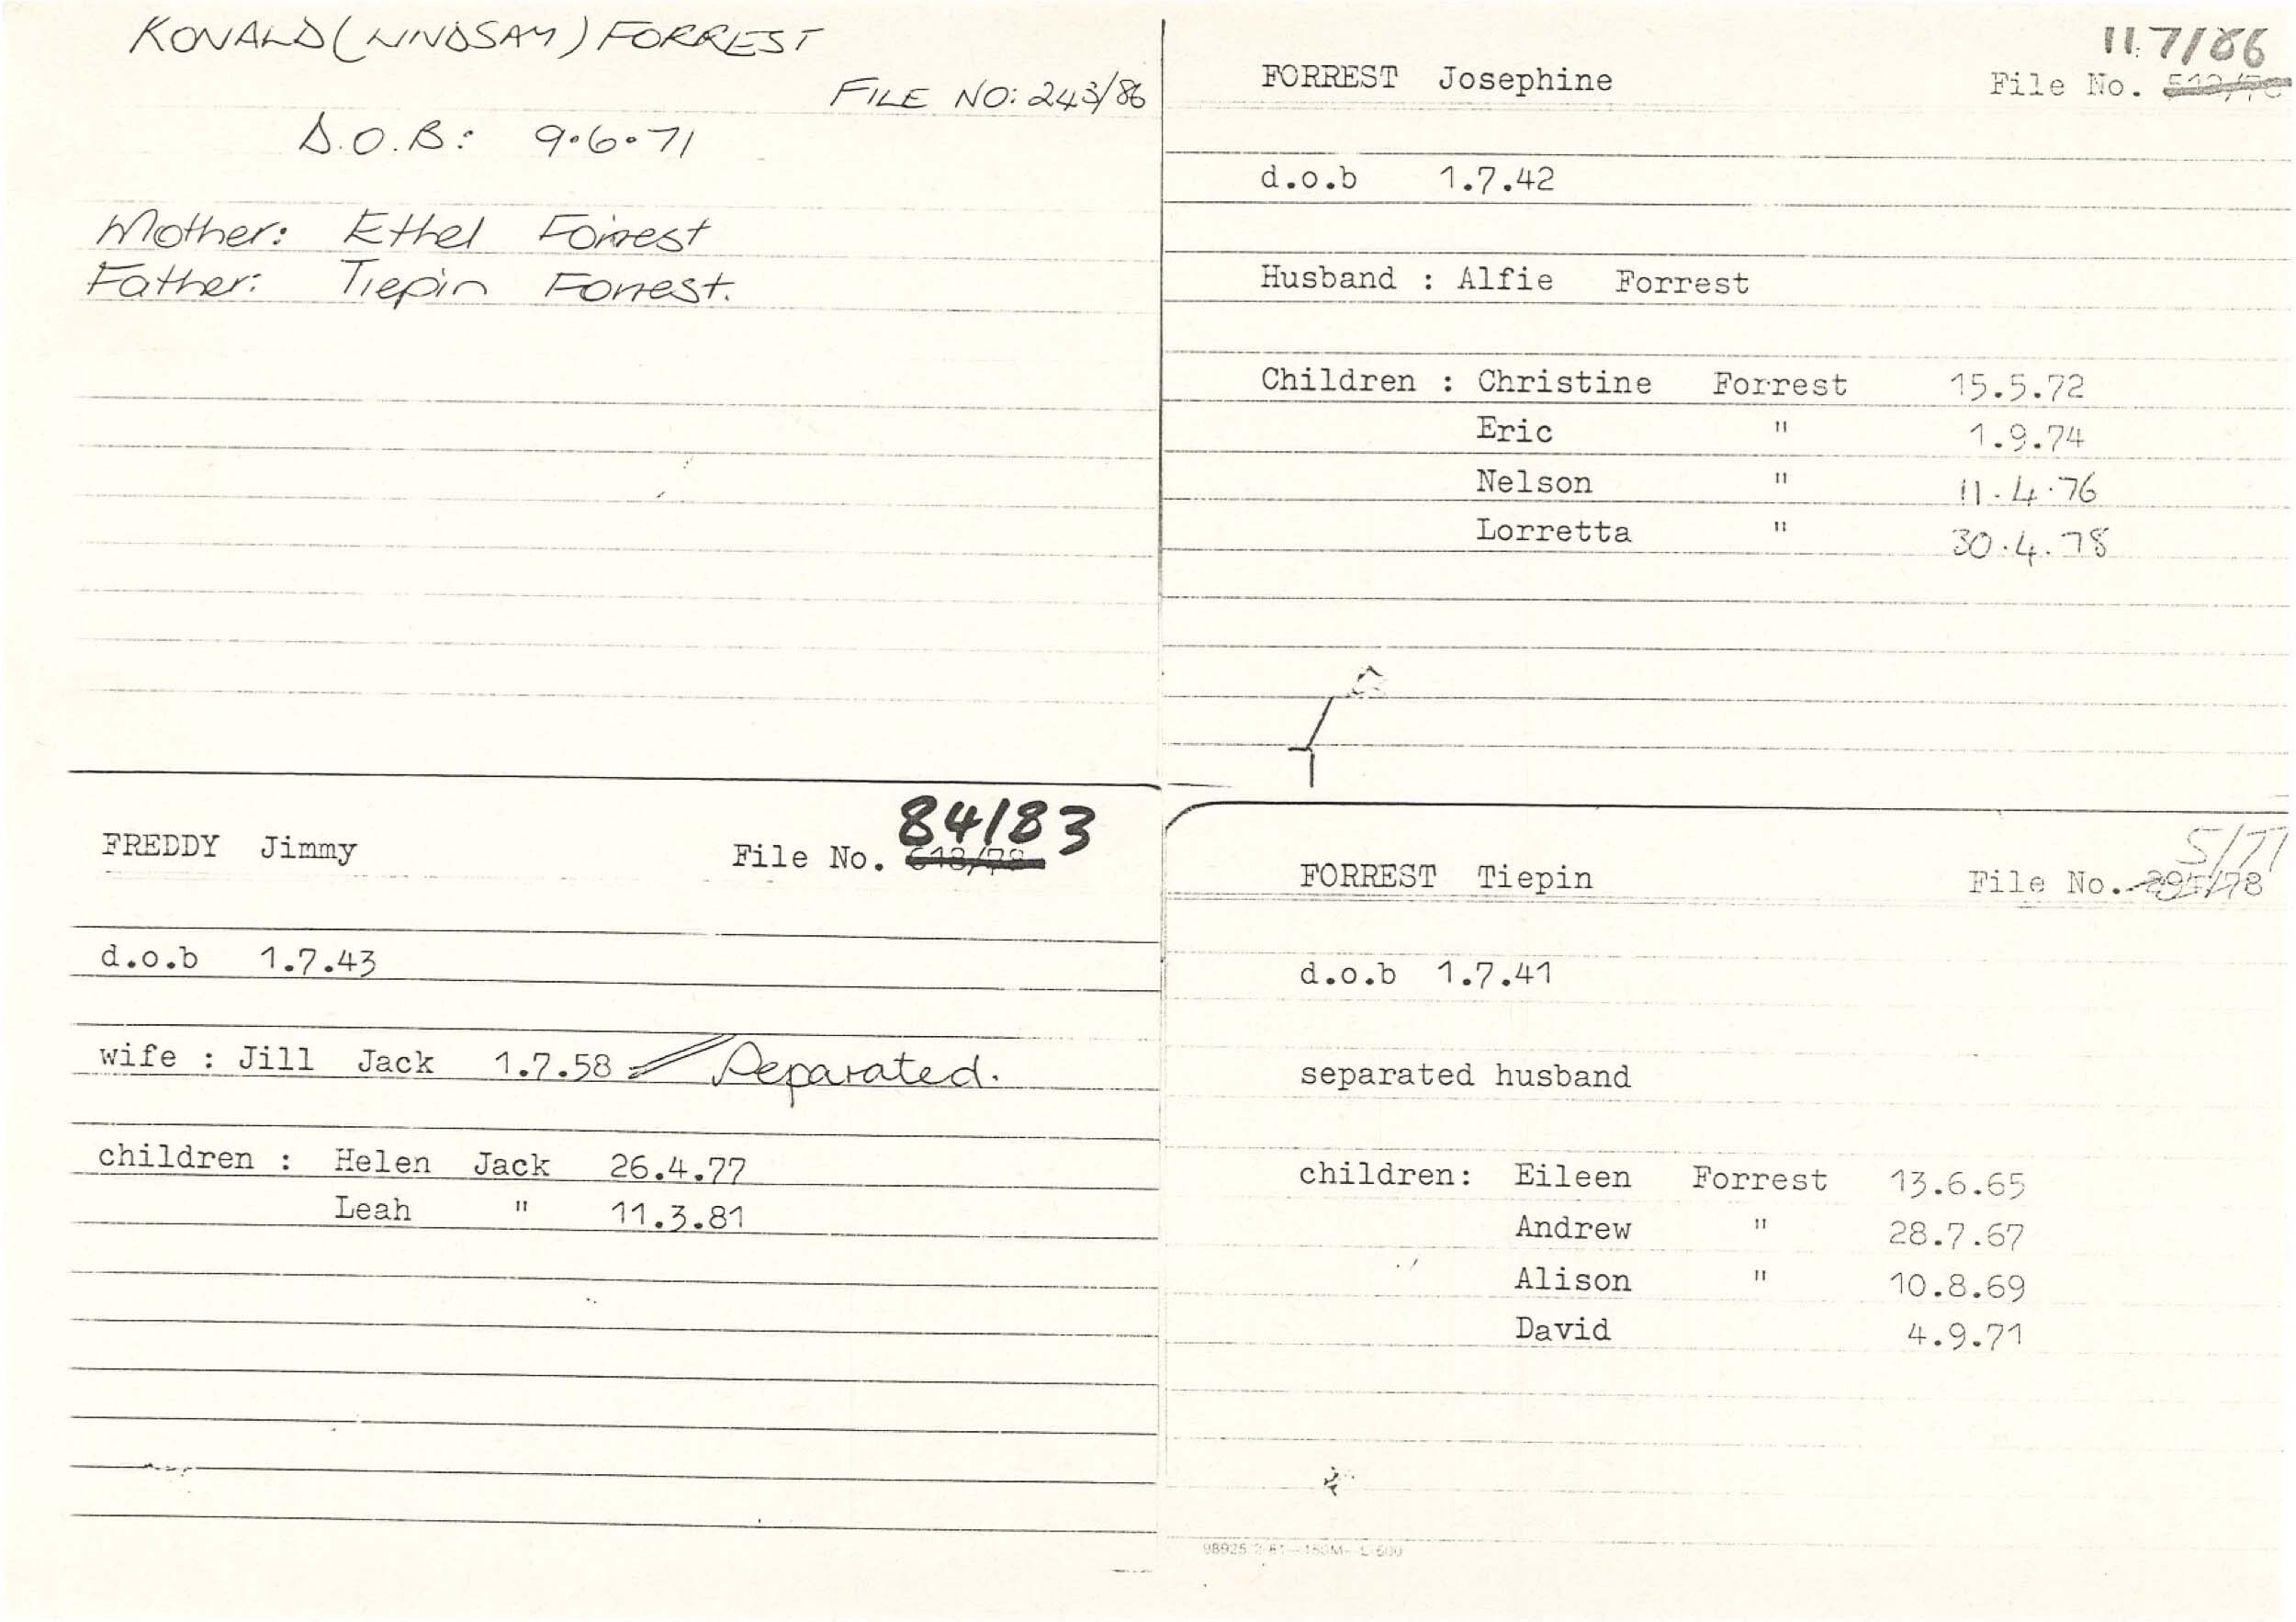 RONALD (LINDSAY) FORREST
FILE NO: 243/86
D.O.B: 9.6.71
Mother: Ethel Forrest
Father: Tiepin Forrest.
117/86
FORREST Josephine File No.
d.o.b 1.7.42
Husband : Alfie Forrest
Children : Christine Forrest 15.5.72
Eric " 1.9.74
Nelson " 11.4.76
Lorretta " 30.4.78
84/83
FREDDY Jimmy File No.
d.o.b 1.7.43
wife : Jill Jack 1.7.58 Separated.
children : Helen Jack 26.4.77
Leah " 11.3.81
5/77
FORREST Tiepin File No.
d.o.b 1.7.41
separated husband
children: Eileen Forrest 13.6.65
Andrew " 28.7.67
Alison " 10.8.69
David 4.9.71